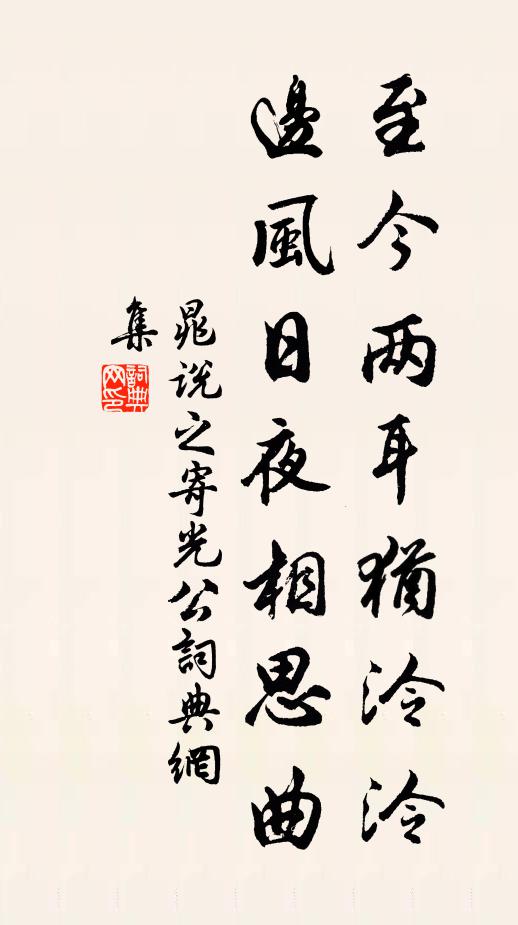 至今两耳猶泠泠
邊風日夜相思曲
晁說之寄光公詞典網
集
詞典
网印